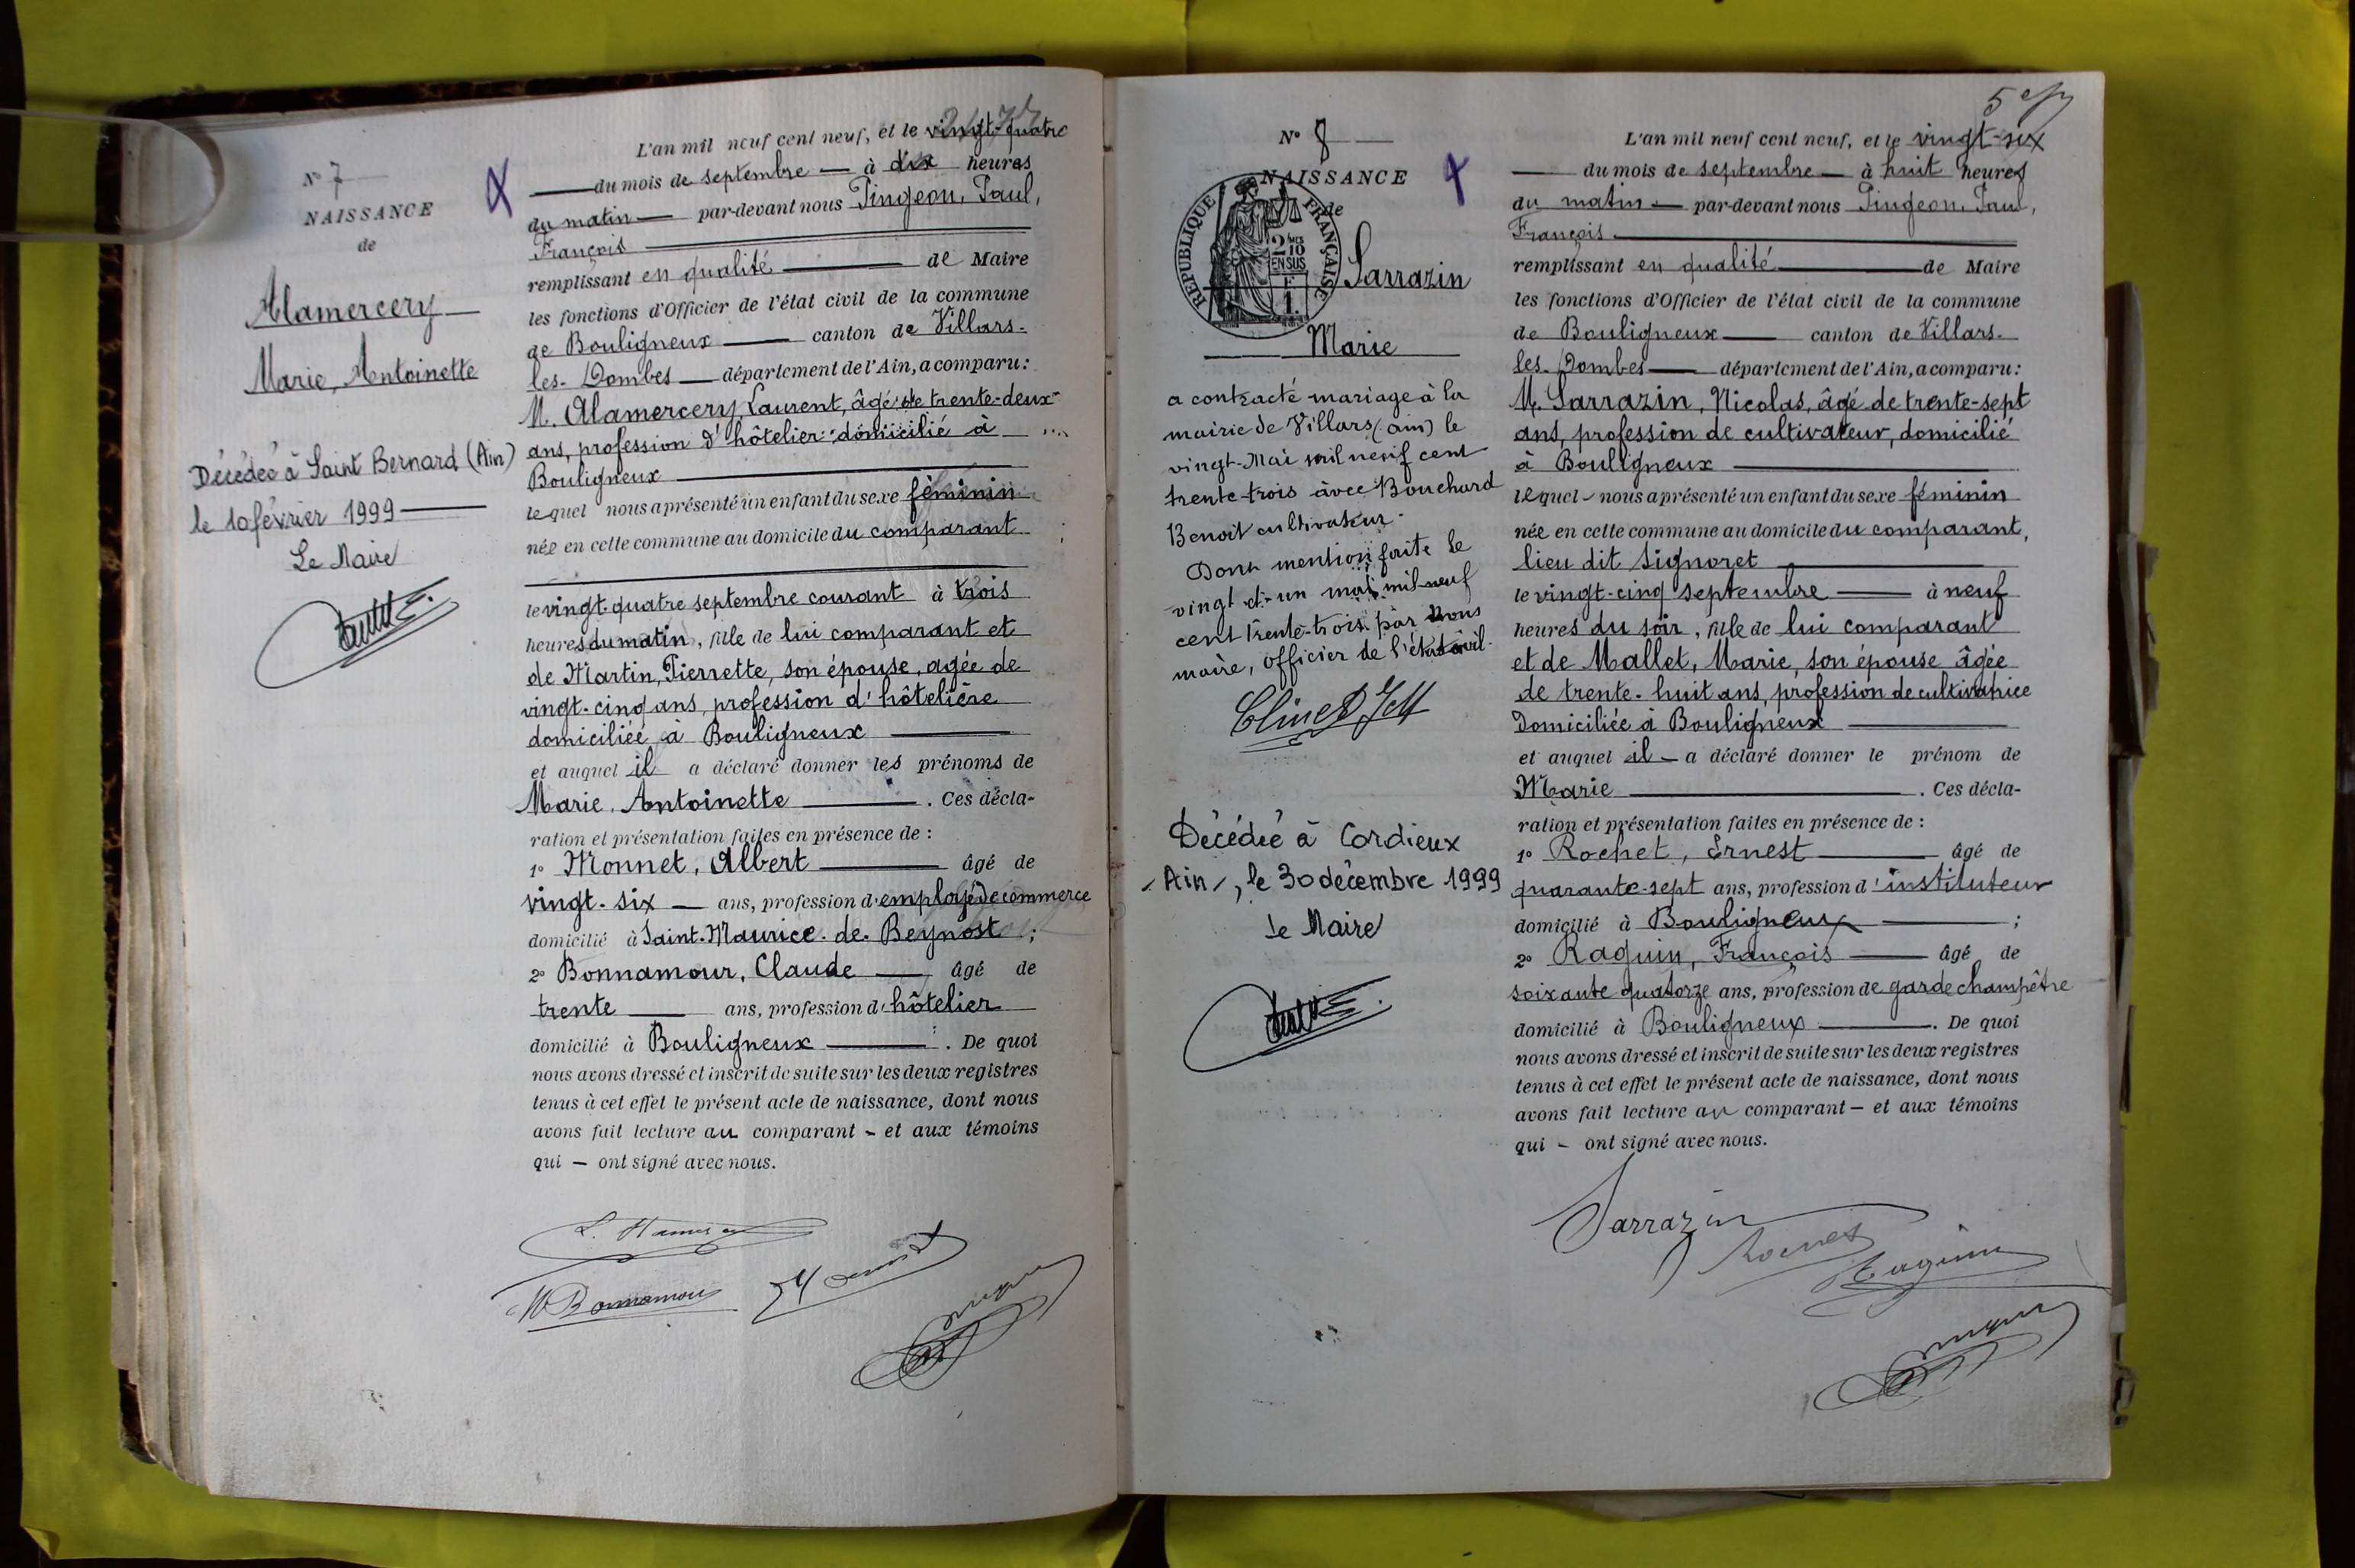 N° 7
NAISSANCE
de
Alamercery
Marie, Antoinette
Décédée à Saint Bernard (Ain)
le 10 février 1999
Le Maire
L'an mil neuf cent neuf, et le vingt-quatre
du mois de septembre à dix heures
du matin par-devant nous Pingeon, Paul,
François
remplissant en qualité de Maire
les fonctions d'Officier de l'état civil de la commune
de Bouligneux canton de Villars-
les-Dombes département de l'Ain, a comparu:
M. Alamercery, Laurent, âgé de trente-deux
ans, profession d'hôtelier domicilié à
Bouligneux
lequel nous a présenté un enfant du sexe féminin
née en cette commune au domicile du comparant
le vingt-quatre septembre courant à trois
heures du matin, fille de lui comparant et
de Martin, Pierrette, son épouse, agée de
vingt-cinq ans, profession d'hôtelière
domiciliée à Bouligneux
et auquel il a déclaré donner les prénoms de
Marie, Antoinette. Ces décla-
ration et présentation faites en présence de :
1° Monnet, Albert âgé de
vingt-six ans, profession d'employé de commerce
domicilié à Saint-Maurice-de-Beynost ;
2° Bonnamour, Claude âgé de
trente ans, profession d'hôtelier
domicilié à Bouligneux. De quoi
nous avons dressé et inscrit de suite sur les deux registres
tenus à cet effet le présent acte de naissance, dont nous
avons fait lecture au comparant - et aux témoins
qui - ont signé avec nous.
Bonnamour
N° 8
NAISSANCE
de
REPUBLIQUE FRANÇAISE
2 MES
10
EN SUS
F
1.
Sarrazin
Marie
a contracté mariage à la
mairie de Villars (ain) le
vingt-Mai mil neuf cent
trente-trois avec Bouchard
Benoit cultivateur.
Dont mention faite le
vingt et un mai mil neuf
cent trente-trois par nous
maire, officier de l'état civil.
Décédée à Cordieux
-Ain-, le 30 décembre 1999
Le Maire
L'an mil neuf cent neuf, et le vingt-six
du mois de septembre à huit heures
du matin par-devant nous Pingeon, Paul,
François.
remplissant en qualité de Maire
les fonctions d'Officier de l'état civil de la commune
de Bouligneux canton de Villars-
les-Dombes département de l'Ain, a comparu:
M. Sarrazin, Nicolas, âgé de trente-sept
ans, profession de cultivateur, domicilié
à Bouligneux
lequel nous a présenté un enfant du sexe féminin
née en cette commune au domicile du comparant,
lieu dit Signoret
le vingt-cinq septembre à neuf
heures du soir, fille de lui comparant
et de Mallet, Marie, son épouse âgée
de trente-huit ans, profession de cultivatrice
Domiciliée à Bouligneux
et auquel il a déclaré donner le prénom de
Marie. Ces décla-
ration et présentation faites en présence de :
1° Rochet, Ernest âgé de
quarante-sept ans, profession d'instituteur
domicilié à Bouligneux ;
2° Raguin, François âgé de
soixante quatorze ans, profession de garde champêtre
domicilié à Bouligneux. De quoi
nous avons dressé et inscrit de suite sur les deux registres
tenus à cet effet le présent acte de naissance, dont nous
avons fait lecture au comparant - et aux témoins
qui - ont signé avec nous.
Sarrazin
Rochet
Raguin